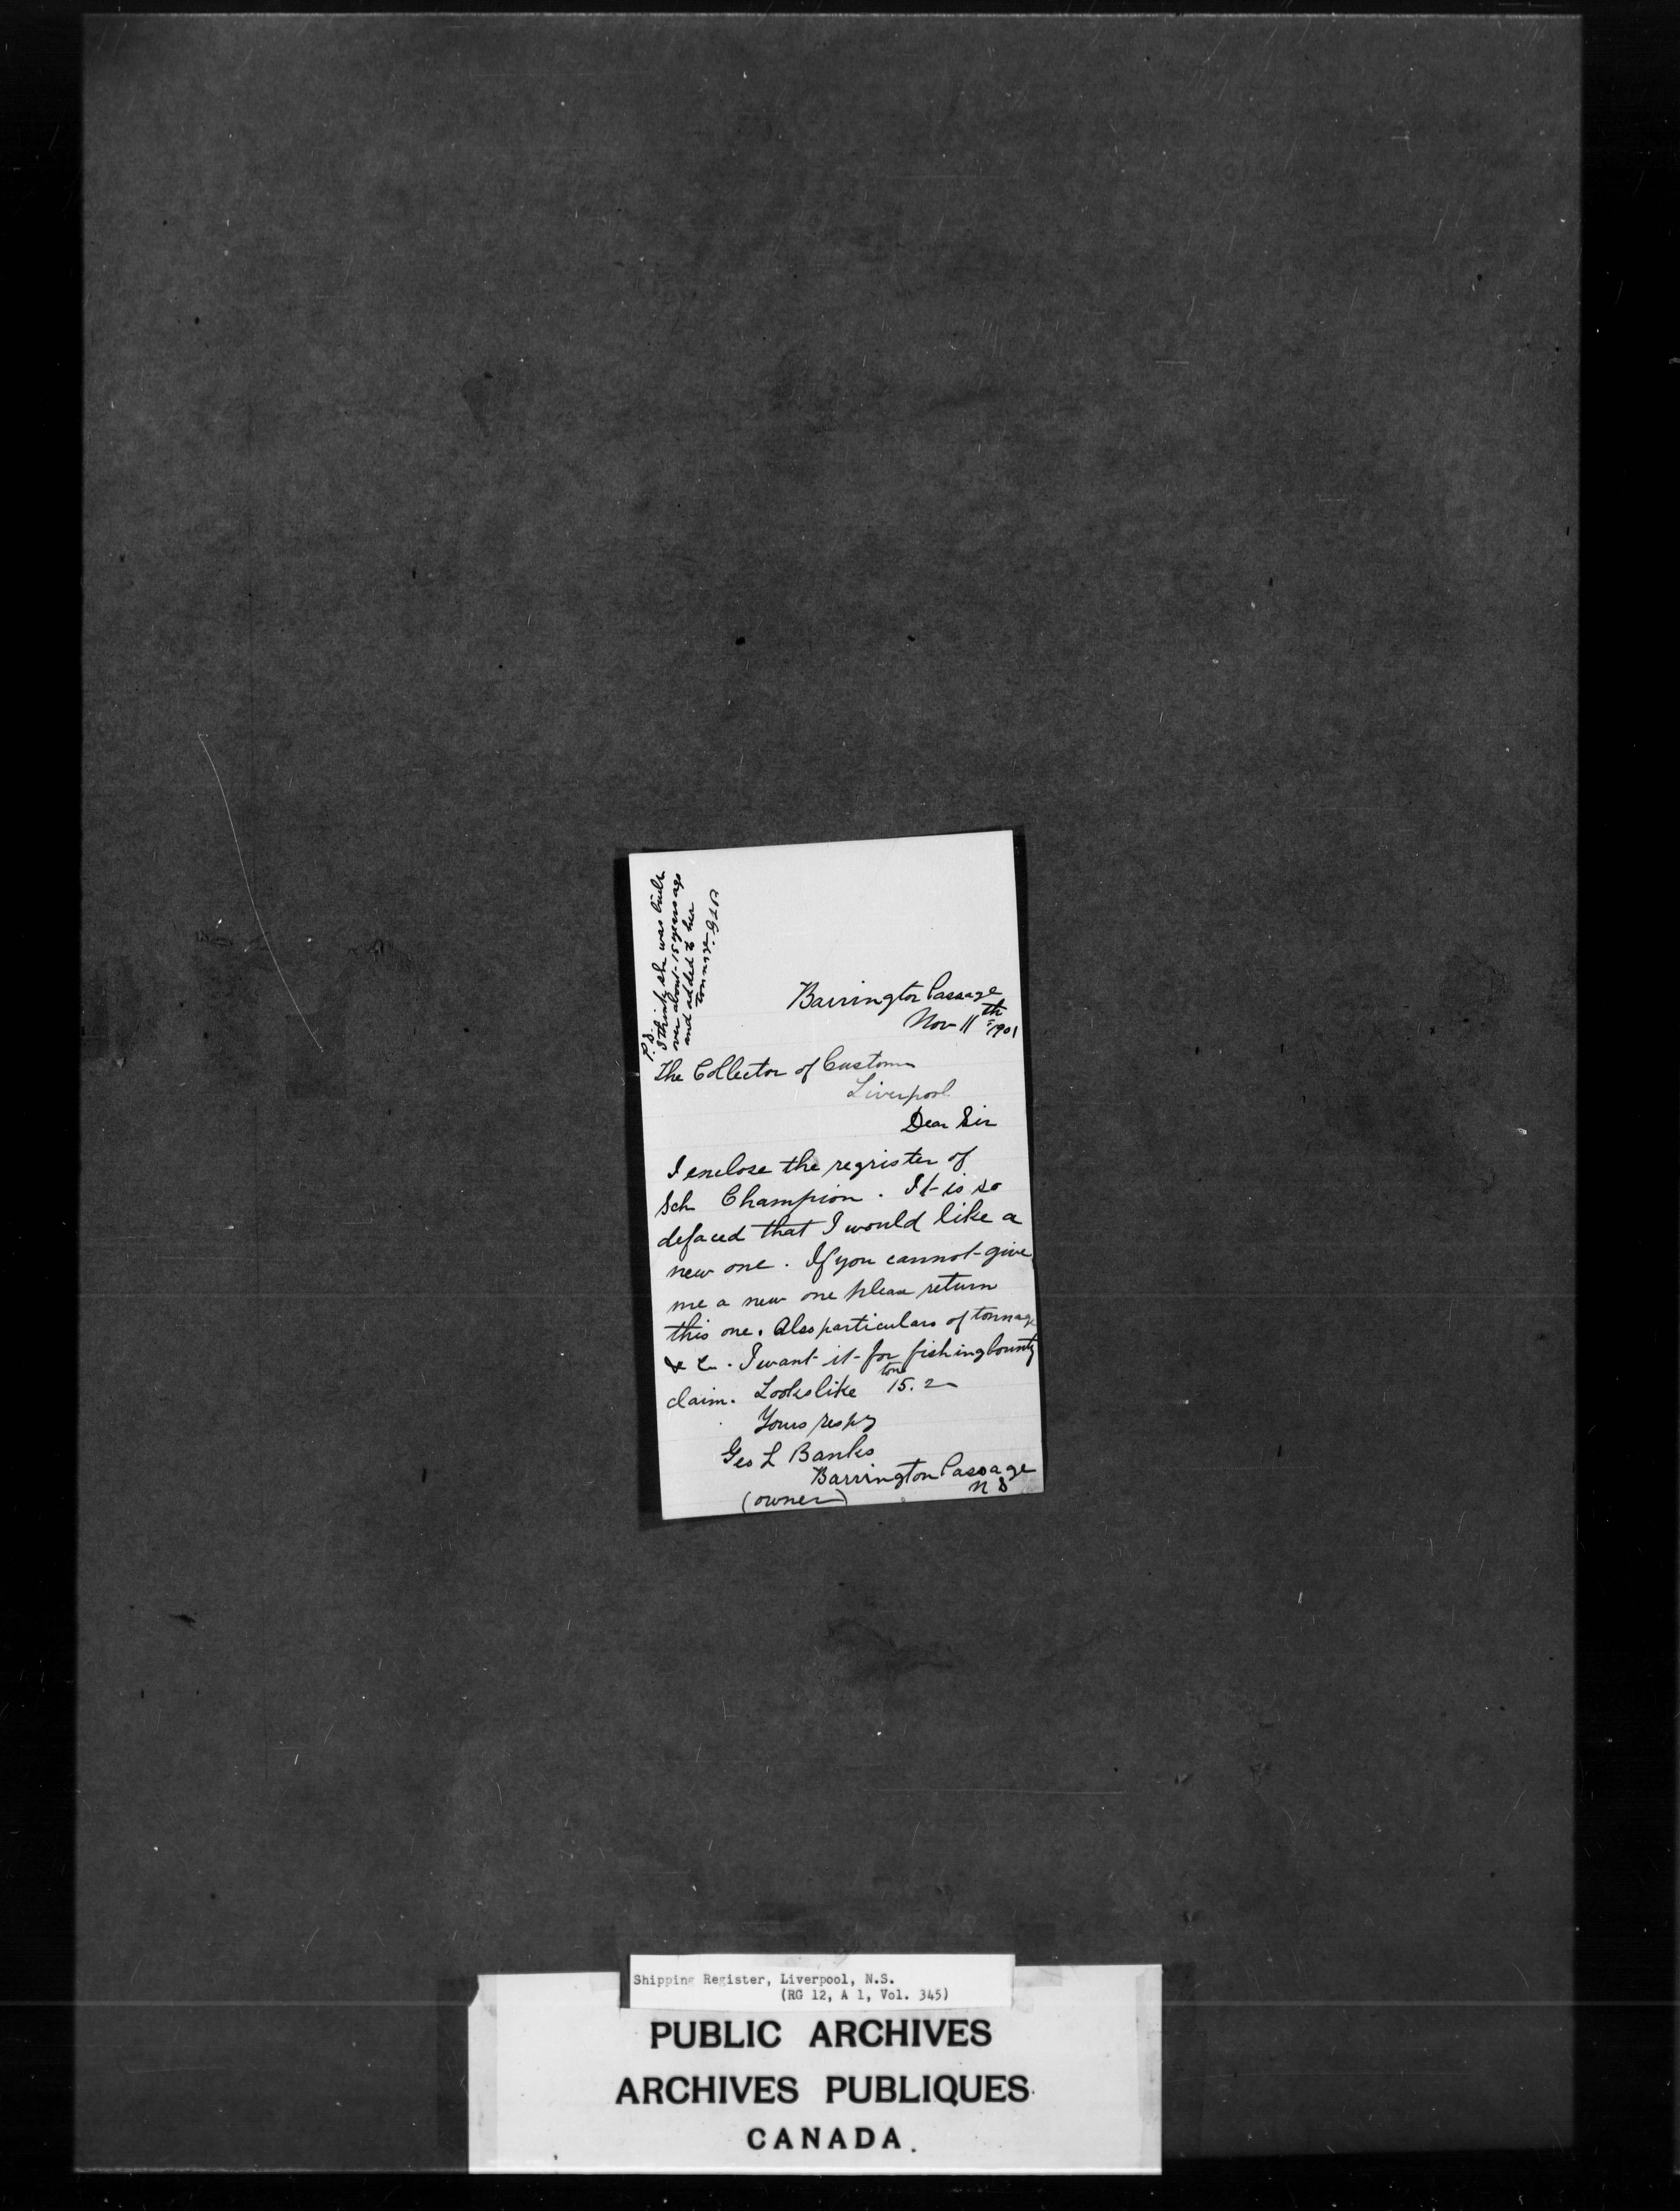 Barrington Passage
Nov 11th 1901
The Collector of Customs
Liverpool
Dear Sir
I enclose the regrister of
Sch Champion. It is so
defaced that I would like a
new one. If you cannot give
me a new one please return
this one. Also particulars of tonnage
&c. I want it for fishing bounty
claim. Looks like 15.2 tons
Yours respy
Geo L Banks
Barrington Passage
N S
(owner)
P.S.
I think she was built
over about 15 years ago
and added to her
tonnage. GLB
Shipping Register, Liverpool, N.S.
(RG 12, A 1, Vol. 345)
PUBLIC ARCHIVES
ARCHIVES PUBLIQUES
CANADA.